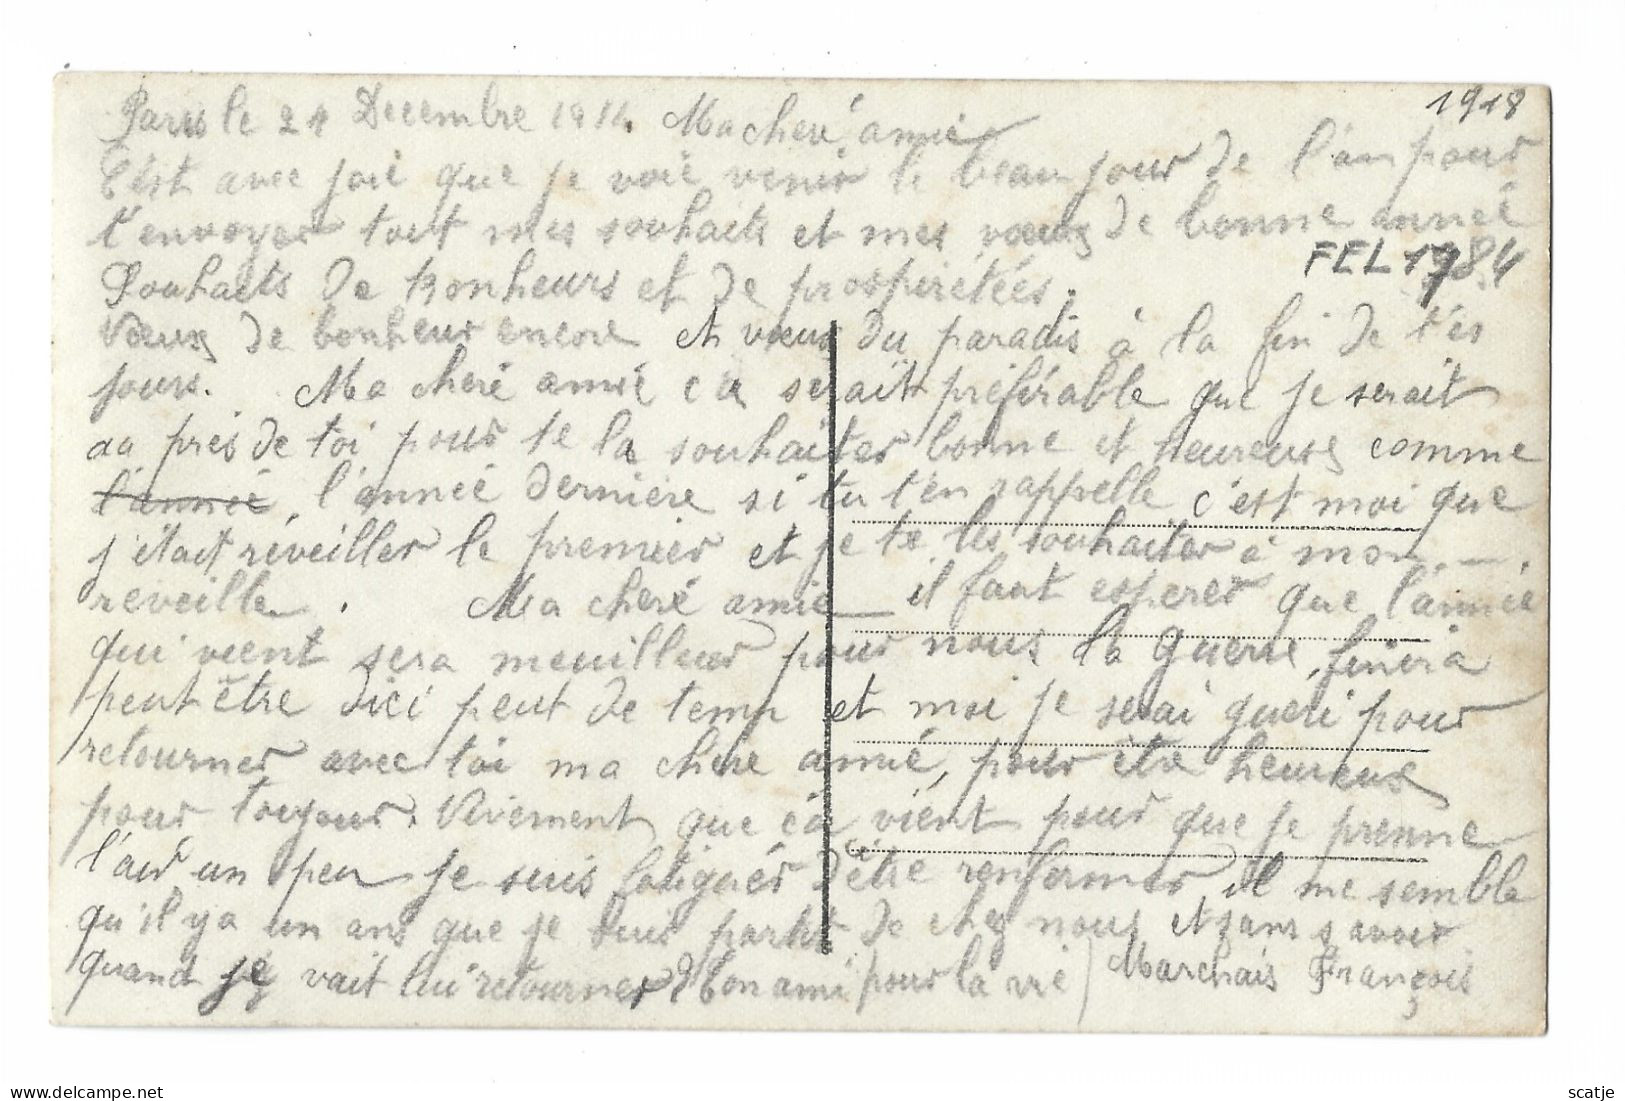 1918
Paris le 24 Decembre 1914. Ma cheré amie
C'ést avec joie que je voie venir le beau jour de l'an pour
t'envoyer tout mes souhaits et mes vœux de bonne année
FEL 1984
Souhaits de Bonheurs et de prospérétées.
Vœux de bonheur encore et vœux du paradis à la fin de t'és
jours. Ma cheré amié ca serait préférable que je serait
au prés de toi pour te la souhaiter bonne et heureuse comme
l'année, l'année derniere si tu t'en rappelle c'est moi que
j'était réveiller le premier et je te les souhaiter à mon
reveille. Ma cheré amie il faut esperer que l'année
qui vient sera meuilleur pour nous la guerre finira
peut être dici peut de temp et moi je serai queri pour
retourner avec toi ma chere amié, pour être heureux
pour toujour. Vivement que ça vient pour que je prenne
l'air un peu je suis fatiguér d'être renfermer il me semble
qu'il y a un ans que je suis partit de chez nous et sans savoir
quand je vait lui retourner Ton ami pour la vie) Marchais François
scatje